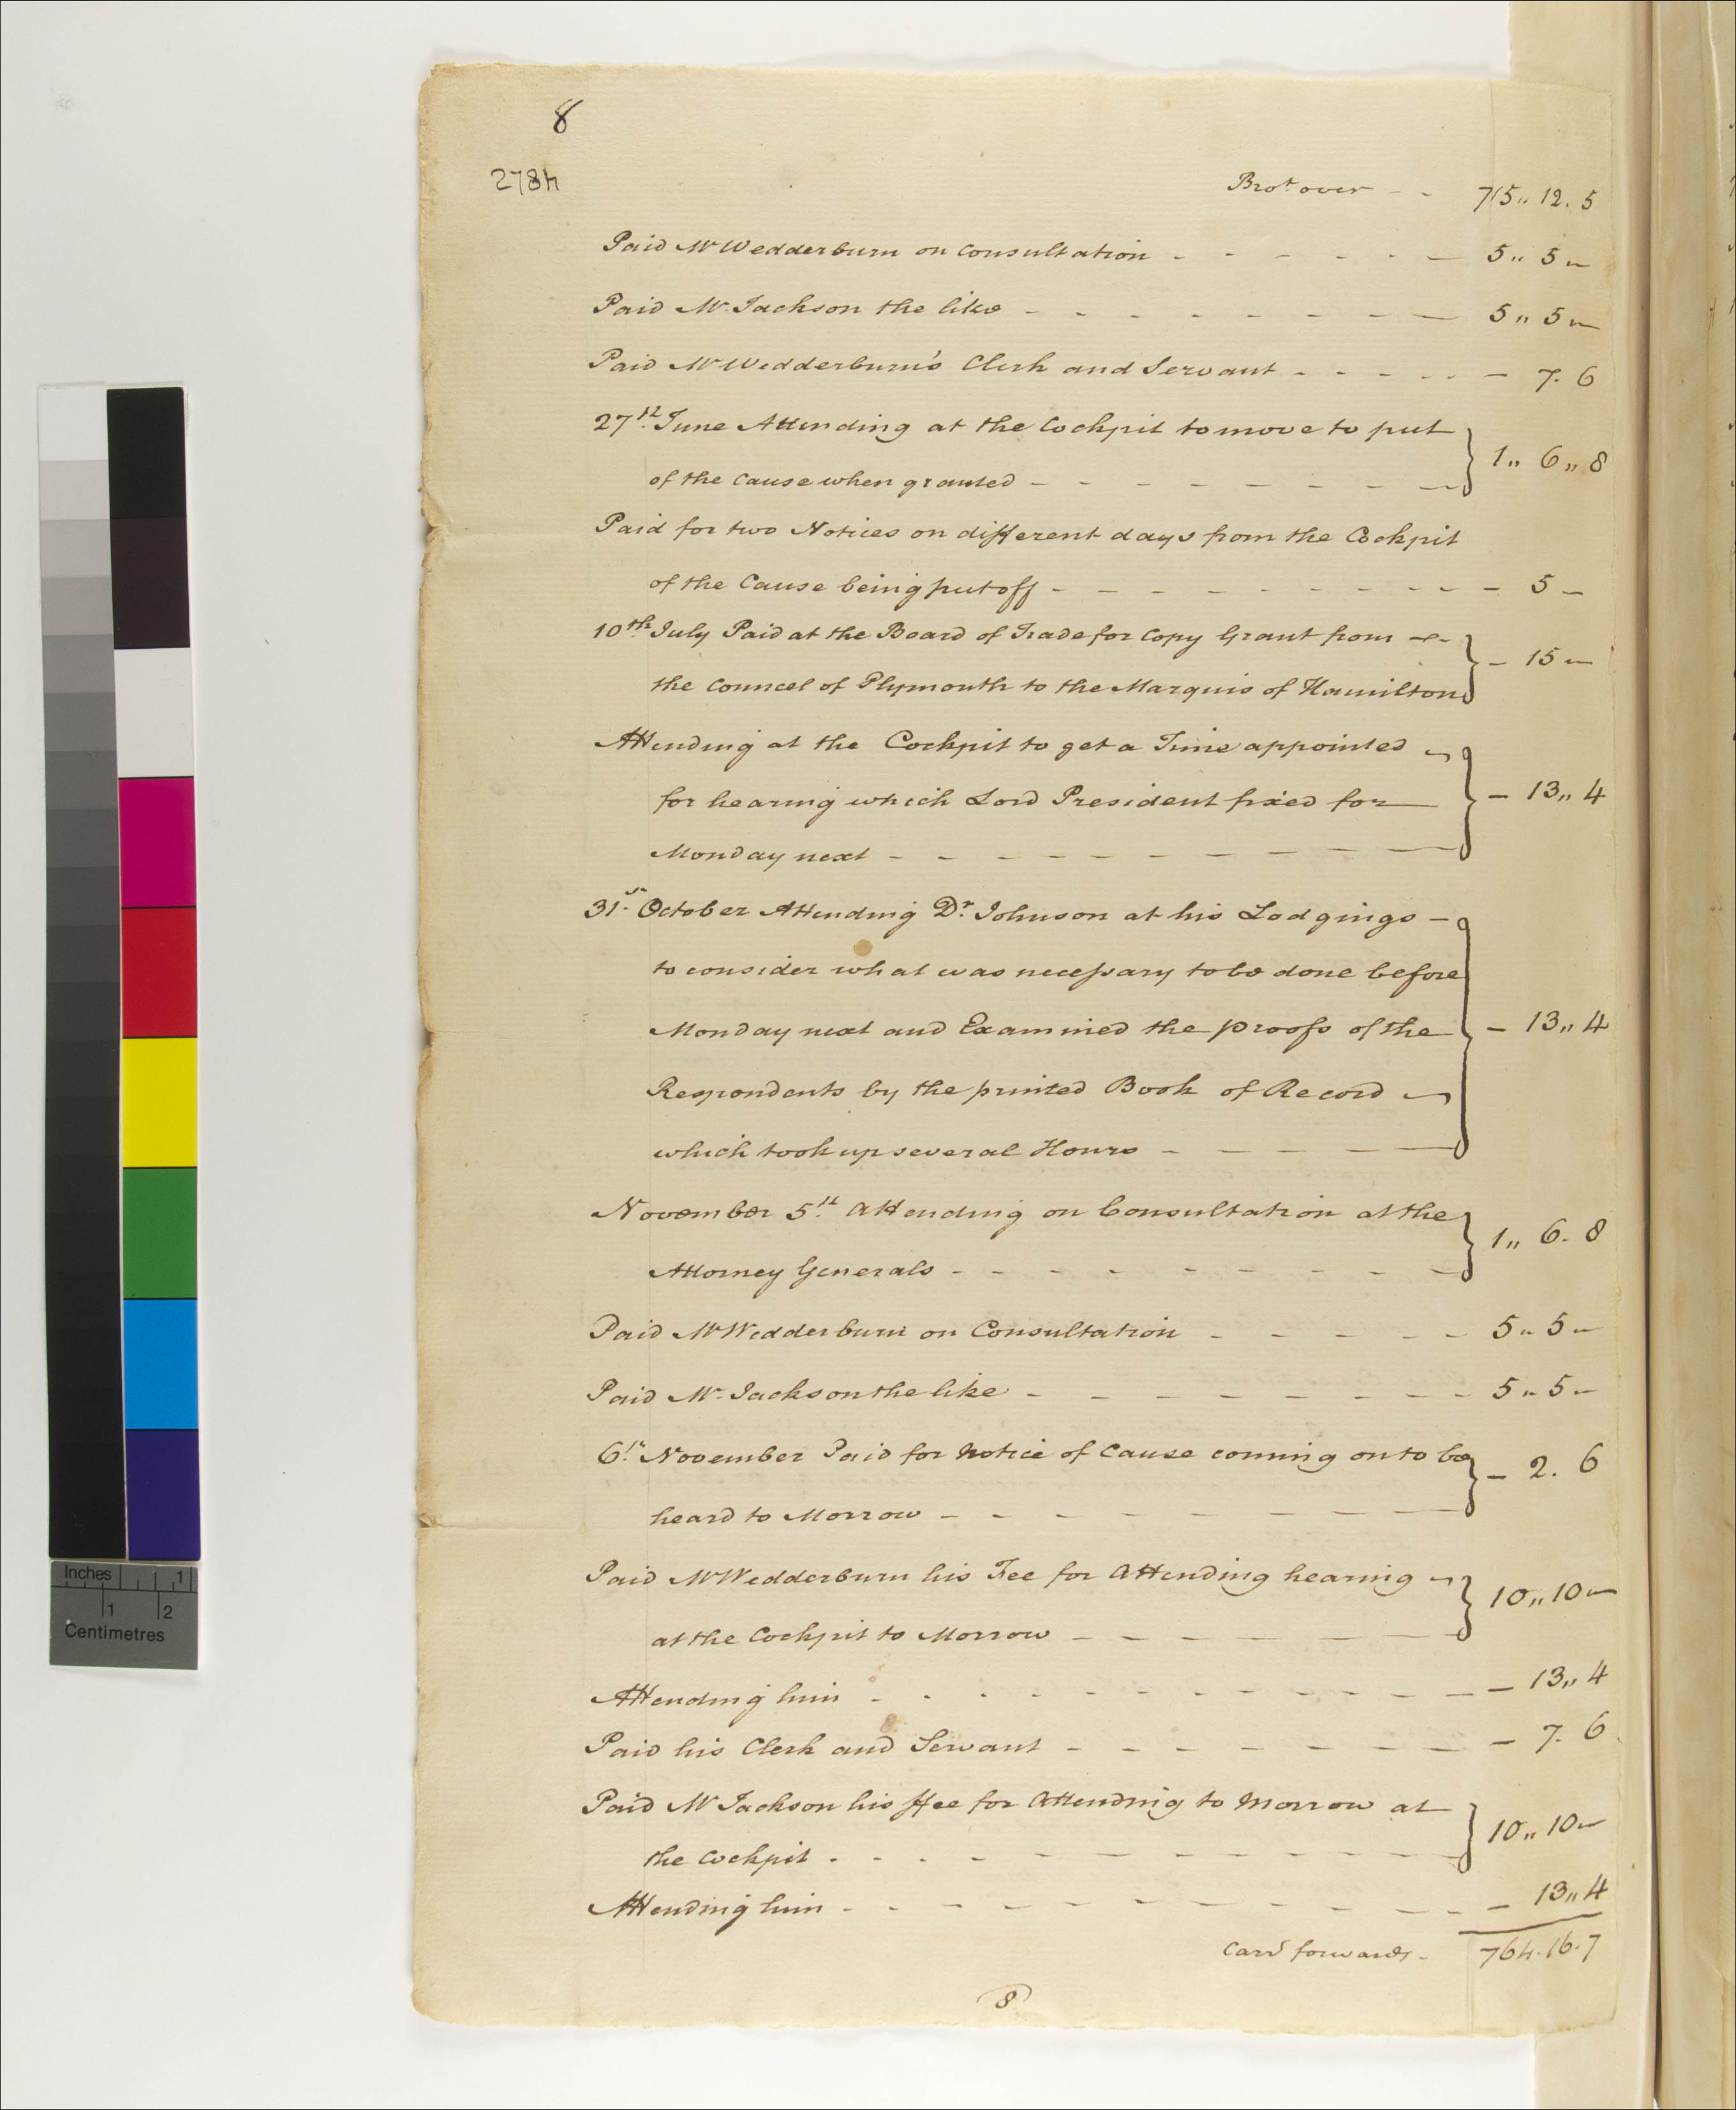 8
278h
Brot. over - - 715,, 12. 5
Paid Mr Wedderburn on Consultation - - - - - - 5,, 5 —
Paid Mr. Jackson the like - - - - - - - - 5,, 5 —
Paid Mr Wedderburn's Clerk and Servant - - - - - - 7. 6
27th. June Attending at the Cockpit to move to put
of the Cause when granted - - - - - - - - 1,, 6,, 8
Paid for two Notices on different days from the Cockpit
of the Cause being put off - - - - - - - - - - 5 —
10th. July Paid at the Board of Trade for Copy Grant from
the Councel of Plymouth to the Marquis of Hamilton - 15 —
Attending at the Cockpit to get a Time appointed
for hearing which Lord President fixed for - 13,, 4
Monday next - - - - - - - - - -
31st. October Attending Dr. Johnson at his Lodgings -
to consider what was necessary to be done before
Monday next and Examined the proofs of the - 13,, 4
Respondents by the printed Book of Record
which took up several Hours - - - - - -
November 5th. Attending on Consultation at the
Attorney Generals - - - - - - - - - - 1,, 6. 8
Paid Mr Wedderburn on Consultation - - - - - 5,, 5 —
Paid Mr. Jackson the like - - - - - - - - - 5,, 5 —
6th. November Paid for Notice of Cause coming on to be
heard to Morrow - - - - - - - - - 2. 6
Paid Mr Wedderburn his Fee for Attending hearing
at the Cockpit to Morrow - - - - - - 10,, 10 —
Attending him - - - - - - - - - - - - - 13,, 4
Paid his Clerk and Servant - - - - - - - - - 7. 6
Paid Mr Jackson his ffee for Attending to Morrow at
the Cockpit - - - - - - - - - - - 10,, 10 —
Attending him - - - - - - - - - - - - - 13,, 4
Carrd forwards - 764. 16. 7
8
Inches 1
1 2
Centimetres